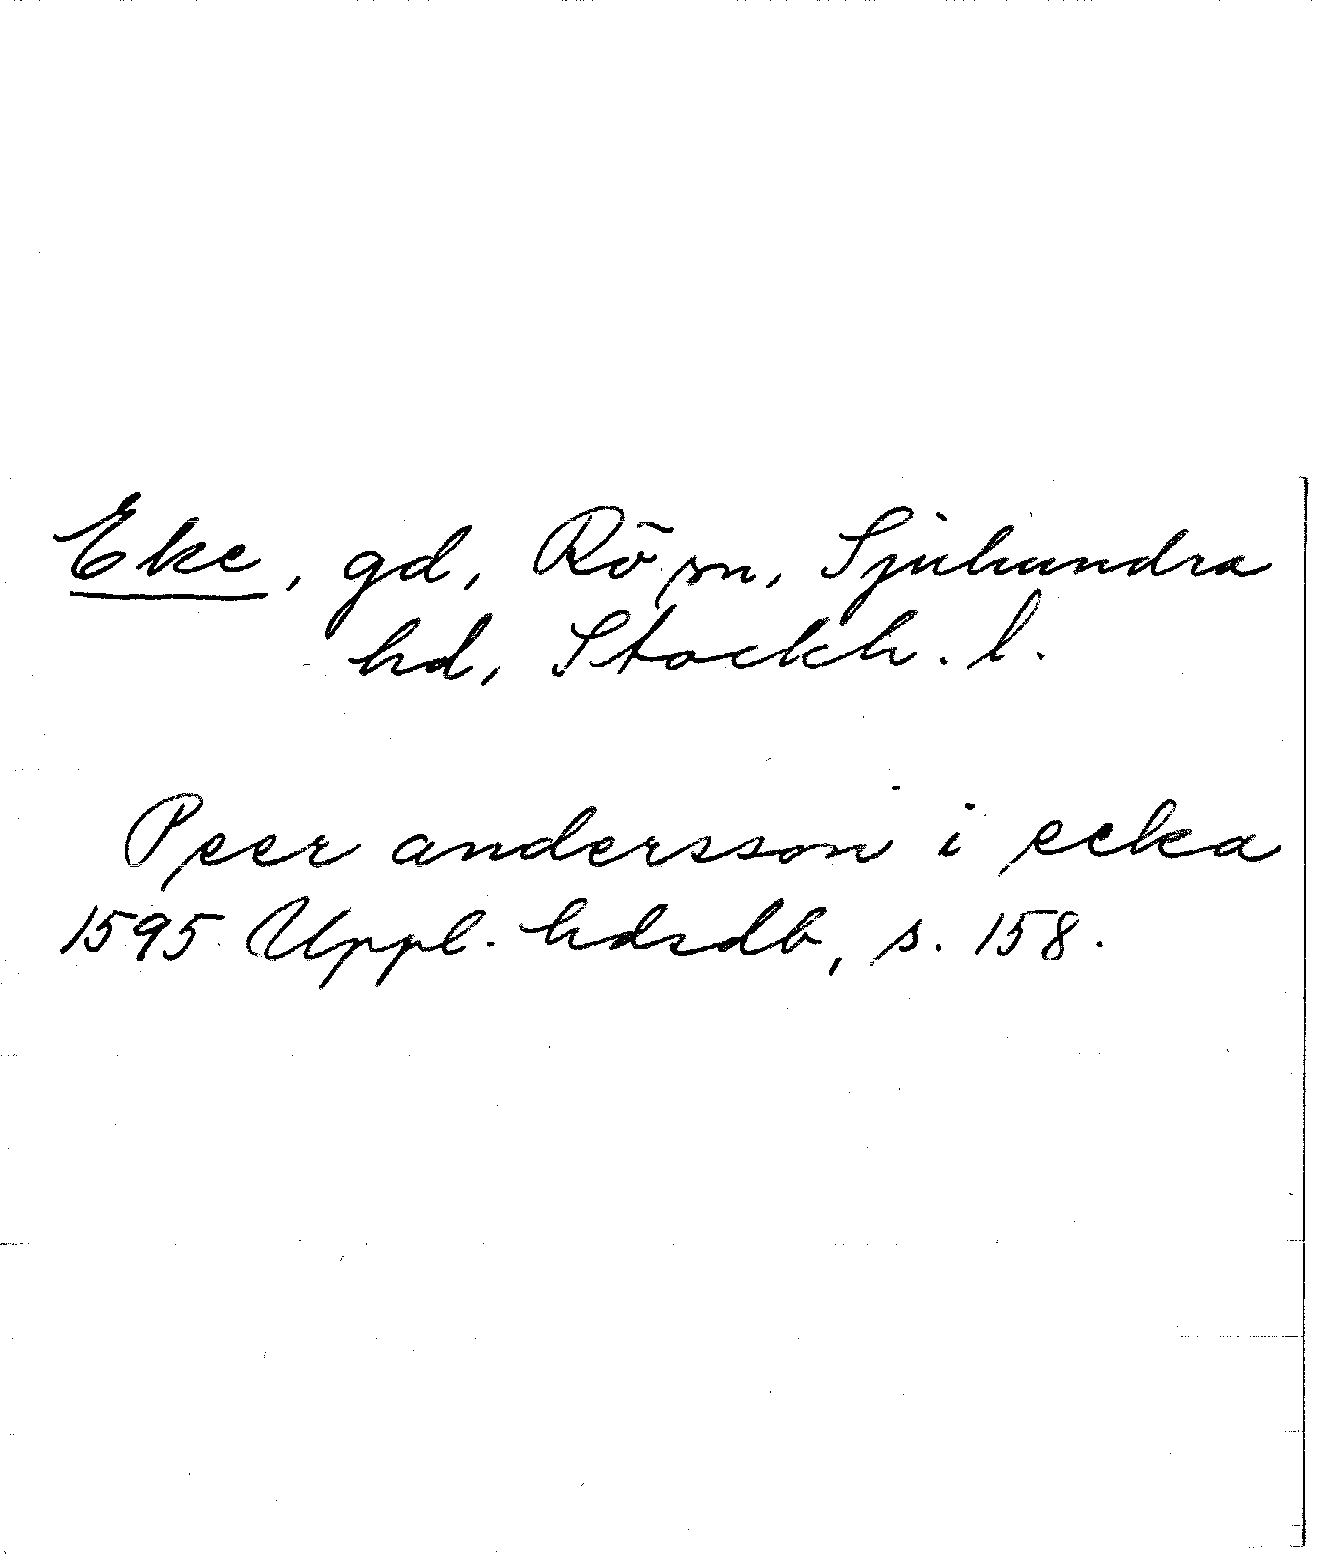 Eke, gd, Rö sn, Sjuhundra
hd, Stockh. l.
Peer andersson i ecka
1595 Uppl. hdsdb, s. 158.